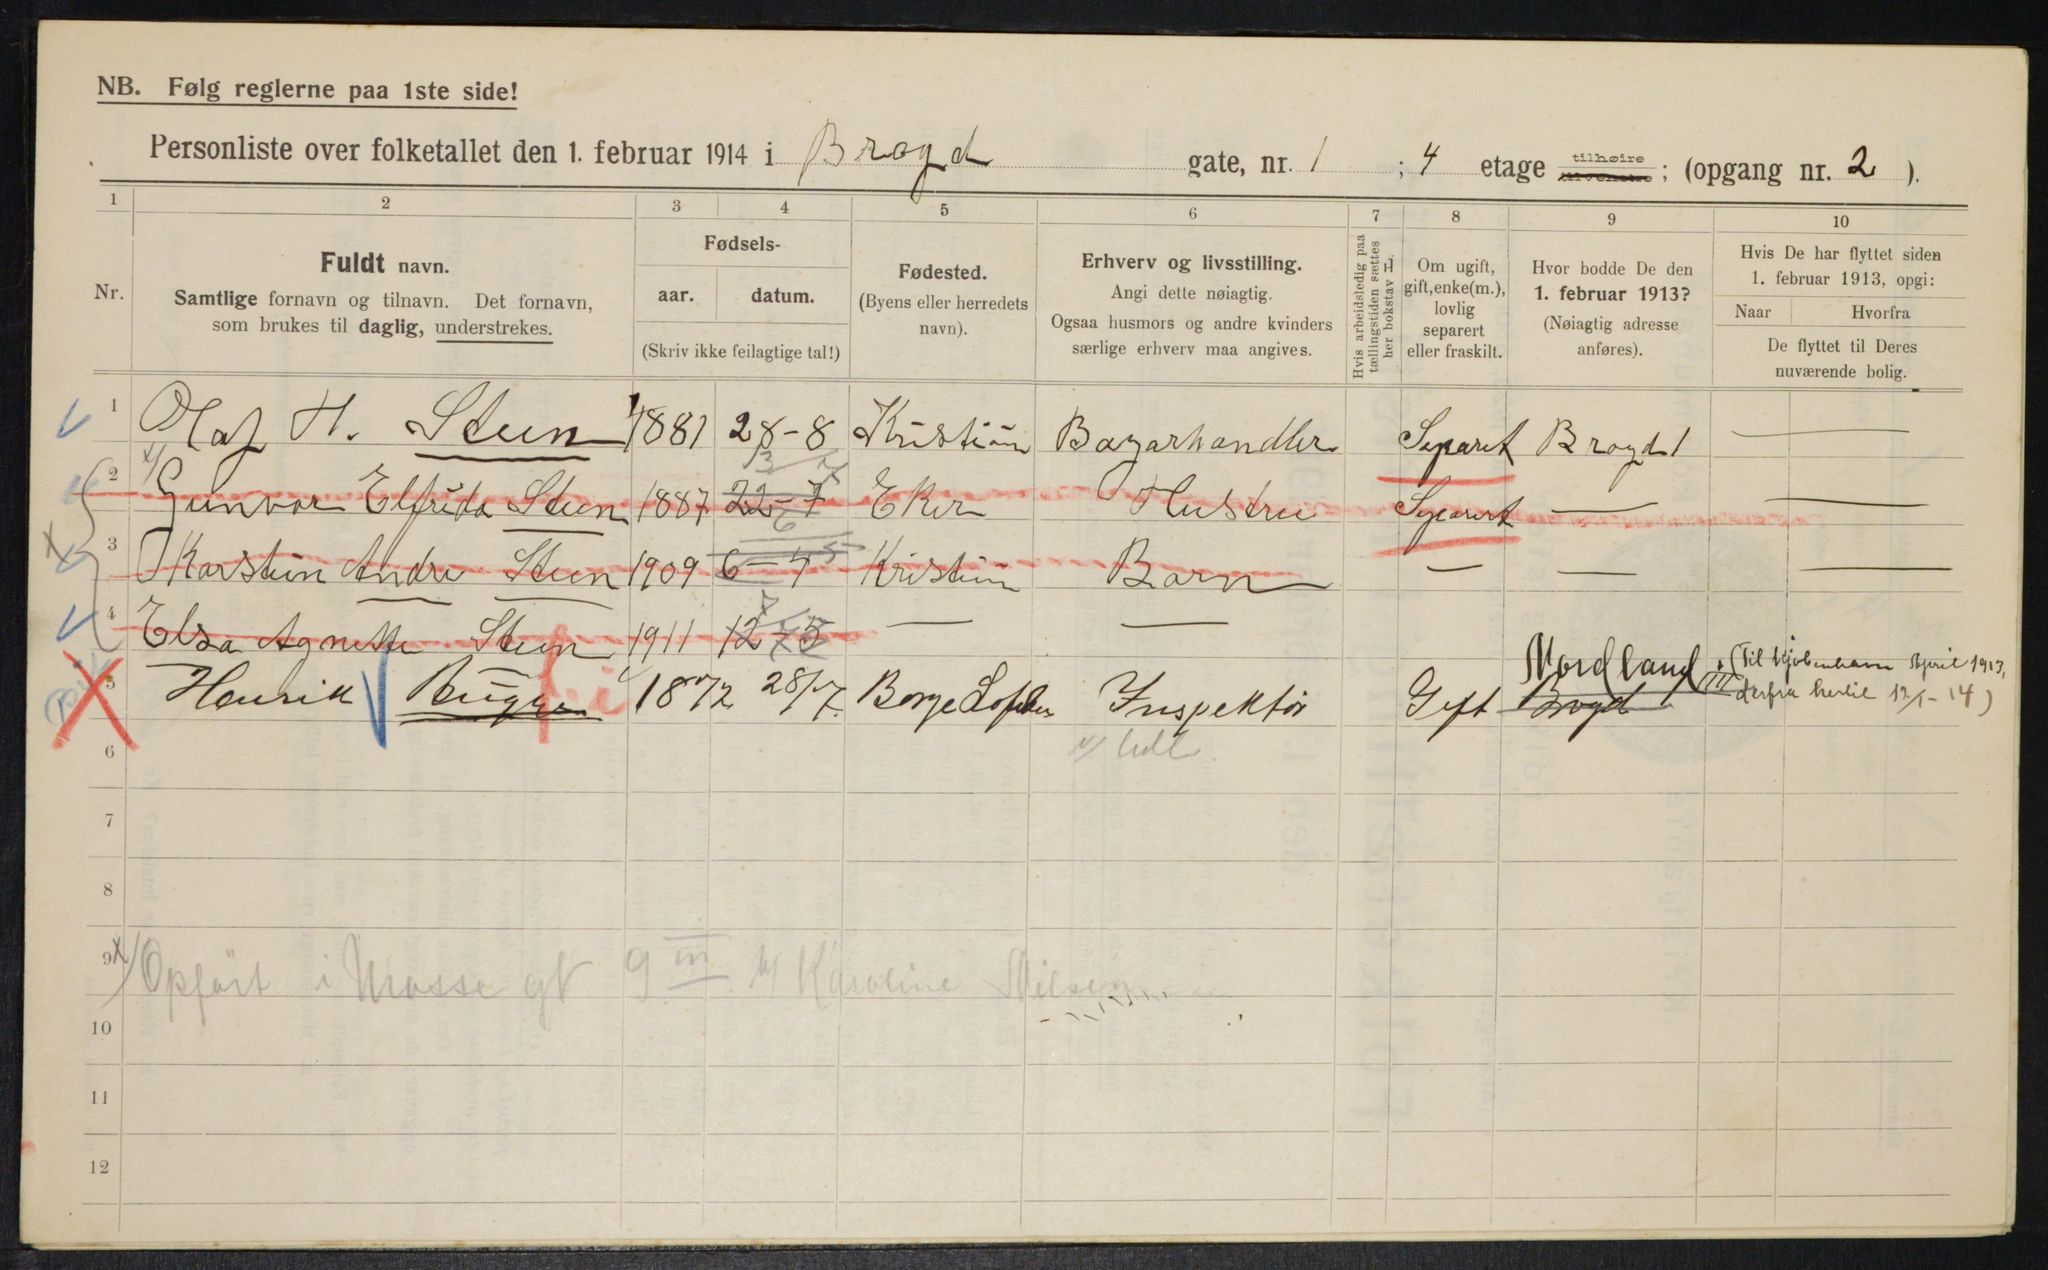 NB. Følg reglerne paa 1ste side!
Personliste over folketallet den 1. februar 1914 i Brogd gate, nr. 1 ; 4 etage tilhøire tilvenstre ; (opgang nr. 2 ).
1 2 3 4 5 6 7 8 9 10
Nr.
Fuldt navn.
Samtlige fornavn og tilnavn. Det fornavn,
som brukes til daglig, understrekes.
Fødsels-
aar. datum.
(Skriv ikke feilagtige tal!)
Fødested.
(Byens eller herredets
navn).
Erhverv og livsstilling.
Angi dette nøiagtig.
Ogsaa husmors og andre kvinders
særlige erhverv maa angives.
Hvis arbeidsledig paa
tællingstiden sættes
her bokstav L.
Om ugift,
gift, enke(m.),
lovlig
separert
eller fraskilt.
Hvor bodde De den
1. februar 1913?
(Nøiagtig adresse
anføres).
Hvis De har flyttet siden
1. februar 1913, opgi:
Naar Hvorfra
De flyttet til Deres
nuværende bolig.
1 Olaf H. Steen 1881 28-8 Kristiän Bazarhandler Separet Brogd 1 —
2 x/ Gunvor Elfrida Steen 1887 22-7 Eker Hustru Separert — —
3 Karsten Andre Steen 1909 6-4 Kristiän Barn — — —
4 Elsa Agnette Steen 1911 12-5 — —
5 Henrik Bugge 1872 28/7. Borge Lofoten Inspektör Gift Brogd Nordland (Til Kjøbenhavn April 1913,
derfra hertil 12/1-14)
6
7
8
9 x/ Opført i Mosse gt 9 III b/ Karoline Nilsen
10
11
12